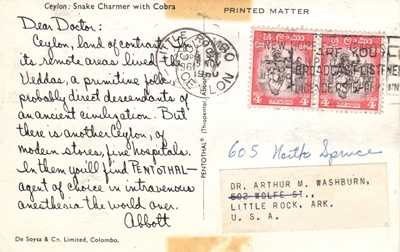 Ceylon: Snake Charmer with Cobra
PRINTED MATTER
Dear Doctor:
Ceylon, land of contrasts. In
its remote areas lived the
Veddas, a primitive folk
probably direct descendants of
an ancient civilization. But
there is another Ceylon, of
modern stores, fine hospitals.
In them you'll find PENTOTHAL—
agent of choice in intravenous
anesthesia the world over.
Abbott
De Soysa & Co. Limited, Colombo.
PENTOTHAL® (Thiopental, Abbott)
COLOMBO
CEYLON
LITTLE ROCK
ARE YOU
BROADCAST LISTENER
605 North Spruce
DR. ARTHUR M. WASHBURN,
502 WOLFE ST.,
LITTLE ROCK, ARK.
U. S. A.